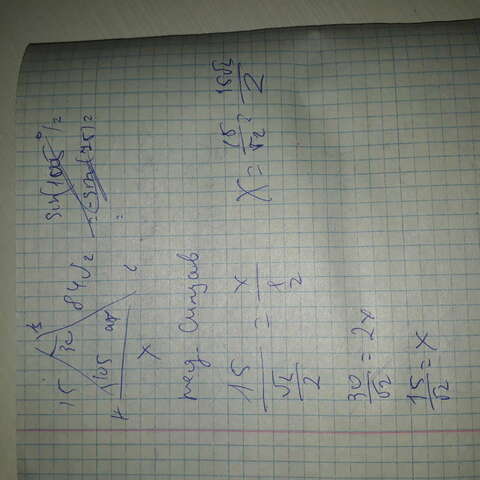 B
15
30
84√2
105
45
A
C
x
sin(105°)/2
= -sin(75)2
=
теор. Синусов
15/(√2/2) = x/(1/2)
x = 15/√2 = 15√2/2
30/√2 = 2x
15/√2 = x